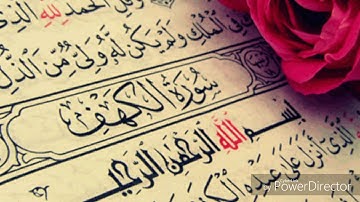 وقل الحمد لله الذي
في الملك ولم يكن له ولي من الذل
سورة الكهف
بسم الله الرحمن الرحيم
الذي أنزل على عبده الكتاب
PowerDirector